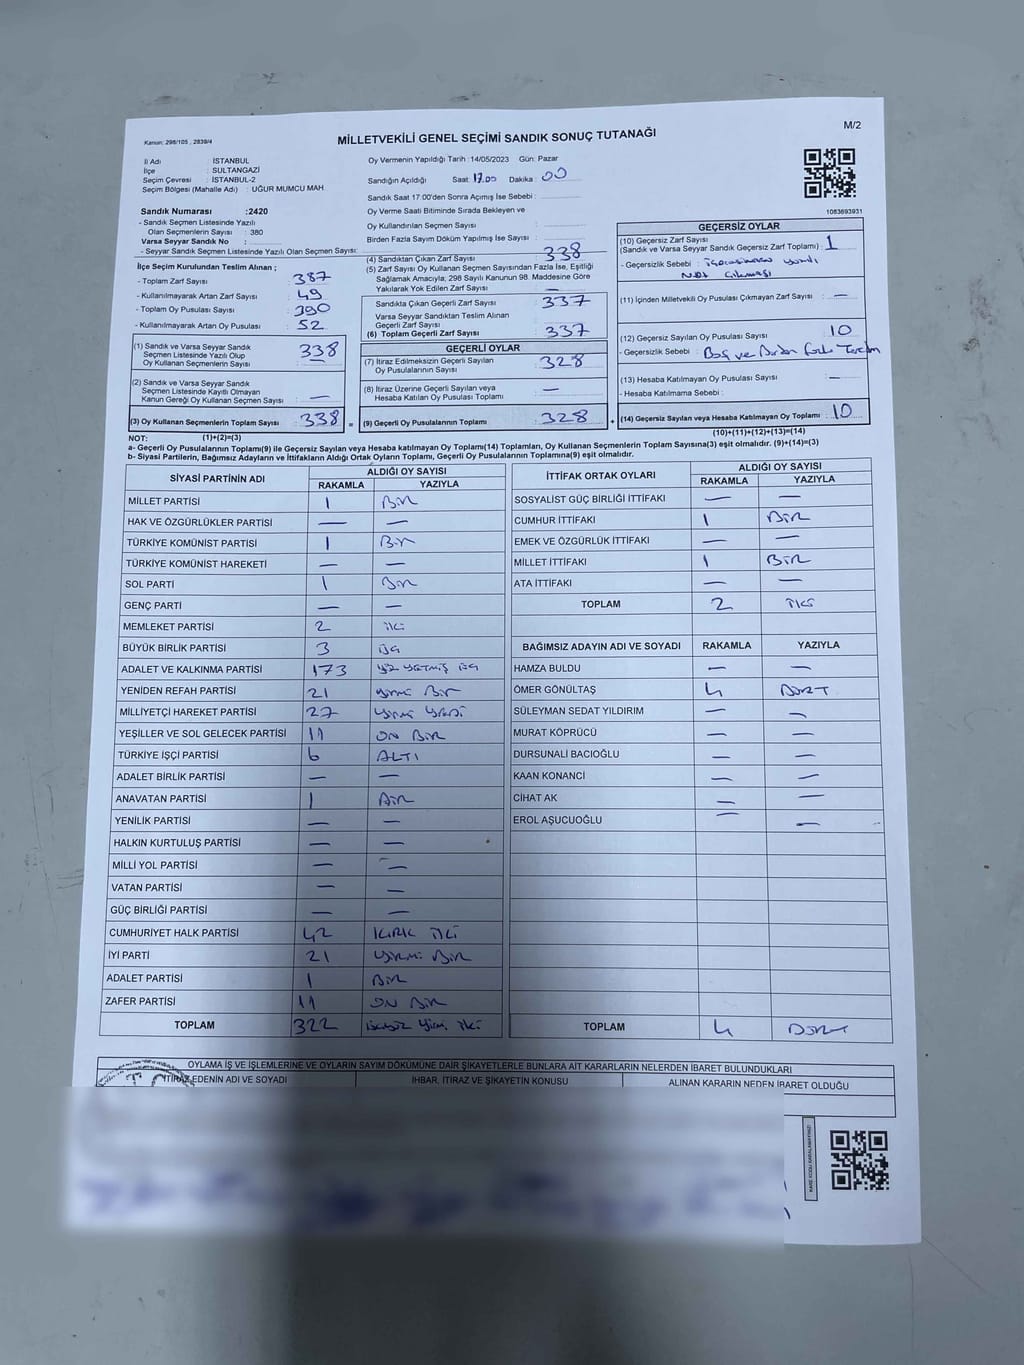 M/2
Kanun: 298/105 , 2839/4
MİLLETVEKİLİ GENEL SEÇİMİ SANDIK SONUÇ TUTANAĞI
İl Adı : İSTANBUL
İlçe : SULTANGAZİ
Seçim Çevresi : İSTANBUL-2
Seçim Bölgesi (Mahalle Adı) : UĞUR MUMCU MAH.
Sandık Numarası :2420
- Sandık Seçmen Listesinde Yazılı
Olan Seçmenlerin Sayısı : 380
Varsa Seyyar Sandık No :
- Seyyar Sandık Seçmen Listesinde Yazılı Olan Seçmen Sayısı:
İlçe Seçim Kurulundan Teslim Alınan ;
- Toplam Zarf Sayısı : 387
- Kullanılmayarak Artan Zarf Sayısı : 49
- Toplam Oy Pusulası Sayısı : 390
- Kullanılmayarak Artan Oy Pusulası : 52
(1) Sandık ve Varsa Seyyar Sandık
Seçmen Listesinde Yazılı Olup
Oy Kullanan Seçmenlerin Sayısı : 338
(2) Sandık ve Varsa Seyyar Sandık
Seçmen Listesinde Kayıtlı Olmayan
Kanun Gereği Oy Kullanan Seçmen Sayısı : —
(3) Oy Kullanan Seçmenlerin Toplam Sayısı : 338 =
Oy Vermenin Yapıldığı Tarih :14/05/2023 Gün: Pazar
Sandığın Açıldığı Saat: 17.00 Dakika : 00
Sandık Saat 17:00'den Sonra Açılmış İse Sebebi :
Oy Verme Saati Bitiminde Sırada Bekleyen ve
Oy Kullandırılan Seçmen Sayısı :
Birden Fazla Sayım Döküm Yapılmış İse Sayısı :
(4) Sandıktan Çıkan Zarf Sayısı : 338
(5) Zarf Sayısı Oy Kullanan Seçmen Sayısından Fazla İse, Eşitliği
Sağlamak Amacıyla; 298 Sayılı Kanunun 98. Maddesine Göre
Yakılarak Yok Edilen Zarf Sayısı : —
Sandıkta Çıkan Geçerli Zarf Sayısı : 337
Varsa Seyyar Sandıktan Teslim Alınan
Geçerli Zarf Sayısı :
(6) Toplam Geçerli Zarf Sayısı : 337
GEÇERLİ OYLAR
(7) İtiraz Edilmeksizin Geçerli Sayılan
Oy Pusulalarının Sayısı : 328
(8) İtiraz Üzerine Geçerli Sayılan veya
Hesaba Katılan Oy Pusulası Toplamı : —
(9) Geçerli Oy Pusulalarının Toplamı : 328 +
1083693931
GEÇERSİZ OYLAR
(10) Geçersiz Zarf Sayısı
(Sandık ve Varsa Seyyar Sandık Geçersiz Zarf Toplamı) : 1
- Geçersizlik Sebebi :
(11) İçinden Milletvekili Oy Pusulası Çıkmayan Zarf Sayısı : —
(12) Geçersiz Sayılan Oy Pusulası Sayısı : 10
- Geçersizlik Sebebi : Boş ve Birden fazla Tercih
(13) Hesaba Katılmayan Oy Pusulası Sayısı : —
- Hesaba Katılmama Sebebi :
(14) Geçersiz Sayılan veya Hesaba Katılmayan Oy Toplamı : 10
NOT: (1)+(2)=(3) (10)+(11)+(12)+(13)=(14)
a- Geçerli Oy Pusulalarının Toplamı(9) ile Geçersiz Sayılan veya Hesaba katılmayan Oy Toplamı(14) Toplamları, Oy Kullanan Seçmenlerin Toplam Sayısına(3) eşit olmalıdır. (9)+(14)=(3)
b- Siyasi Partilerin, Bağımsız Adayların ve İttifakların Aldığı Ortak Oyların Toplamı, Geçerli Oy Pusulalarının Toplamına(9) eşit olmalıdır.
SİYASİ PARTİNİN ADI ALDIĞI OY SAYISI
RAKAMLA YAZIYLA
MİLLET PARTİSİ 1 BİR
HAK VE ÖZGÜRLÜKLER PARTİSİ — —
TÜRKİYE KOMÜNİST PARTİSİ 1 BİR
TÜRKİYE KOMÜNİST HAREKETİ — —
SOL PARTİ 1 BİR
GENÇ PARTİ — —
MEMLEKET PARTİSİ 2 İKİ
BÜYÜK BİRLİK PARTİSİ 3 ÜÇ
ADALET VE KALKINMA PARTİSİ 173 YÜZ YETMİŞ ÜÇ
YENİDEN REFAH PARTİSİ 21 YİRMİ BİR
MİLLİYETÇİ HAREKET PARTİSİ 27 YİRMİ YEDİ
YEŞİLLER VE SOL GELECEK PARTİSİ 11 ON BİR
TÜRKİYE İŞÇİ PARTİSİ 6 ALTI
ADALET BİRLİK PARTİSİ — —
ANAVATAN PARTİSİ 1 BİR
YENİLİK PARTİSİ — —
HALKIN KURTULUŞ PARTİSİ — —
MİLLİ YOL PARTİSİ — —
VATAN PARTİSİ — —
GÜÇ BİRLİĞİ PARTİSİ — —
CUMHURİYET HALK PARTİSİ 42 KIRK İKİ
İYİ PARTİ 21 YİRMİ BİR
ADALET PARTİSİ 1 BİR
ZAFER PARTİSİ 11 ON BİR
TOPLAM 322 üçyüz yirmi iki
İTTİFAK ORTAK OYLARI ALDIĞI OY SAYISI
RAKAMLA YAZIYLA
SOSYALİST GÜÇ BİRLİĞİ İTTİFAKI — —
CUMHUR İTTİFAKI 1 BİR
EMEK VE ÖZGÜRLÜK İTTİFAKI — —
MİLLET İTTİFAKI 1 BİR
ATA İTTİFAKI — —
TOPLAM 2 İKİ
BAĞIMSIZ ADAYIN ADI VE SOYADI RAKAMLA YAZIYLA
HAMZA BULDU — —
ÖMER GÖNÜLTAŞ 4 DÖRT
SÜLEYMAN SEDAT YILDIRIM — —
MURAT KÖPRÜCÜ — —
DURSUNALİ BACIOĞLU — —
KAAN KONANCİ — —
CİHAT AK — —
EROL AŞUCUOĞLU — —
TOPLAM 4 DÖRT
OYLAMA İŞ VE İŞLEMLERİNE VE OYLARIN SAYIM DÖKÜMÜNE DAİR ŞİKAYETLERLE BUNLARA AİT KARARLARIN NELERDEN İBARET BULUNDUKLARI
İTİRAZ EDENİN ADI VE SOYADI İHBAR, İTİRAZ VE ŞİKAYETİN KONUSU ALINAN KARARIN NEDEN İBARET OLDUĞU
KARE KODU KARALAMAYINIZ!